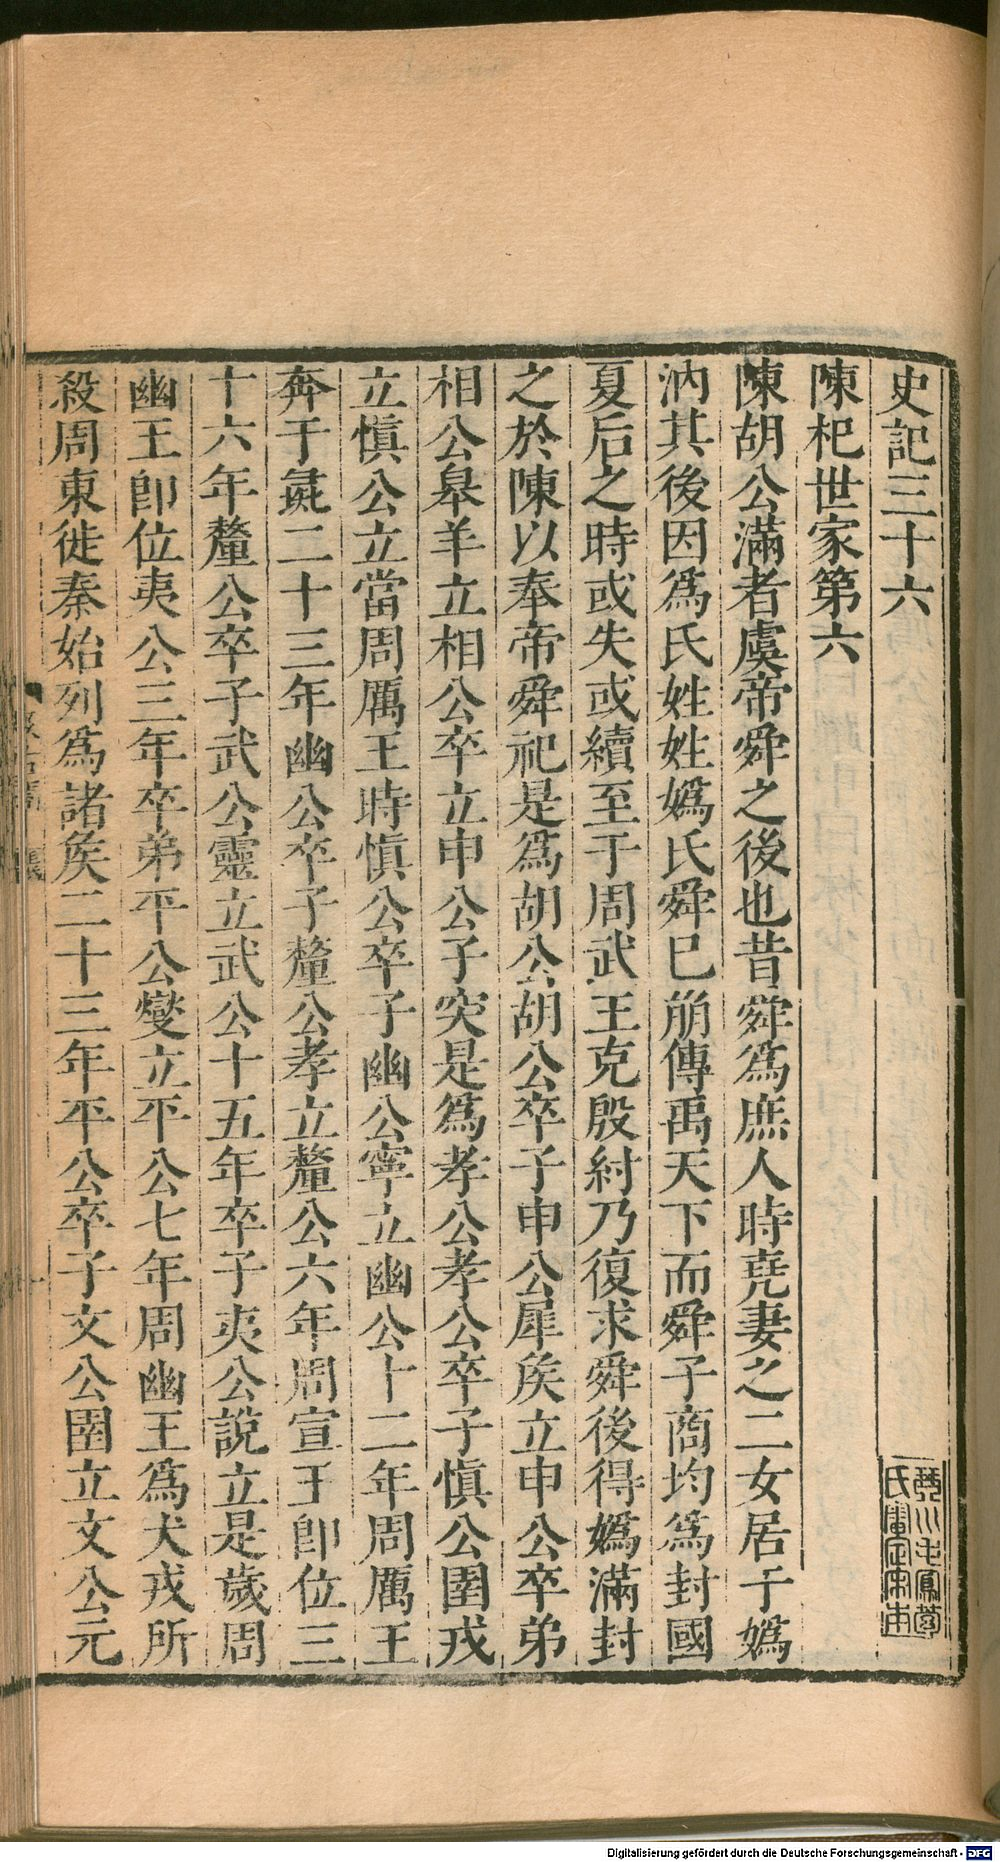 史記三十六
琴川毛鳳苞
氏審定宋本
陳杞世家第六
陳胡公滿者虞帝舜之後也昔舜爲庶人時堯妻之二女居于嬀
汭其後因爲氏姓姓嬀氏舜已崩傳禹天下而舜子商均爲封國
夏后之時或失或續至于周武王克殷紂乃復求舜後得嬀滿封
之於陳以奉帝舜祀是爲胡公胡公卒子申公犀矦立申公卒弟
相公皋羊立相公卒立申公子突是爲孝公孝公卒子愼公圉戎
立愼公立當周厲王時愼公卒子幽公寧立幽公十二年周厲王
奔于彘二十三年幽公卒子釐公孝立釐公六年周宣王卽位三
十六年釐公卒子武公靈立武公十五年卒子夷公說立是歲周
幽王卽位夷公三年卒弟平公燮立平公七年周幽王爲犬戎所
殺周東徙秦始列爲諸矦二十三年平公卒子文公圉立文公元
Digitalisierung gefördert durch die Deutsche Forschungsgemeinschaft - DFG